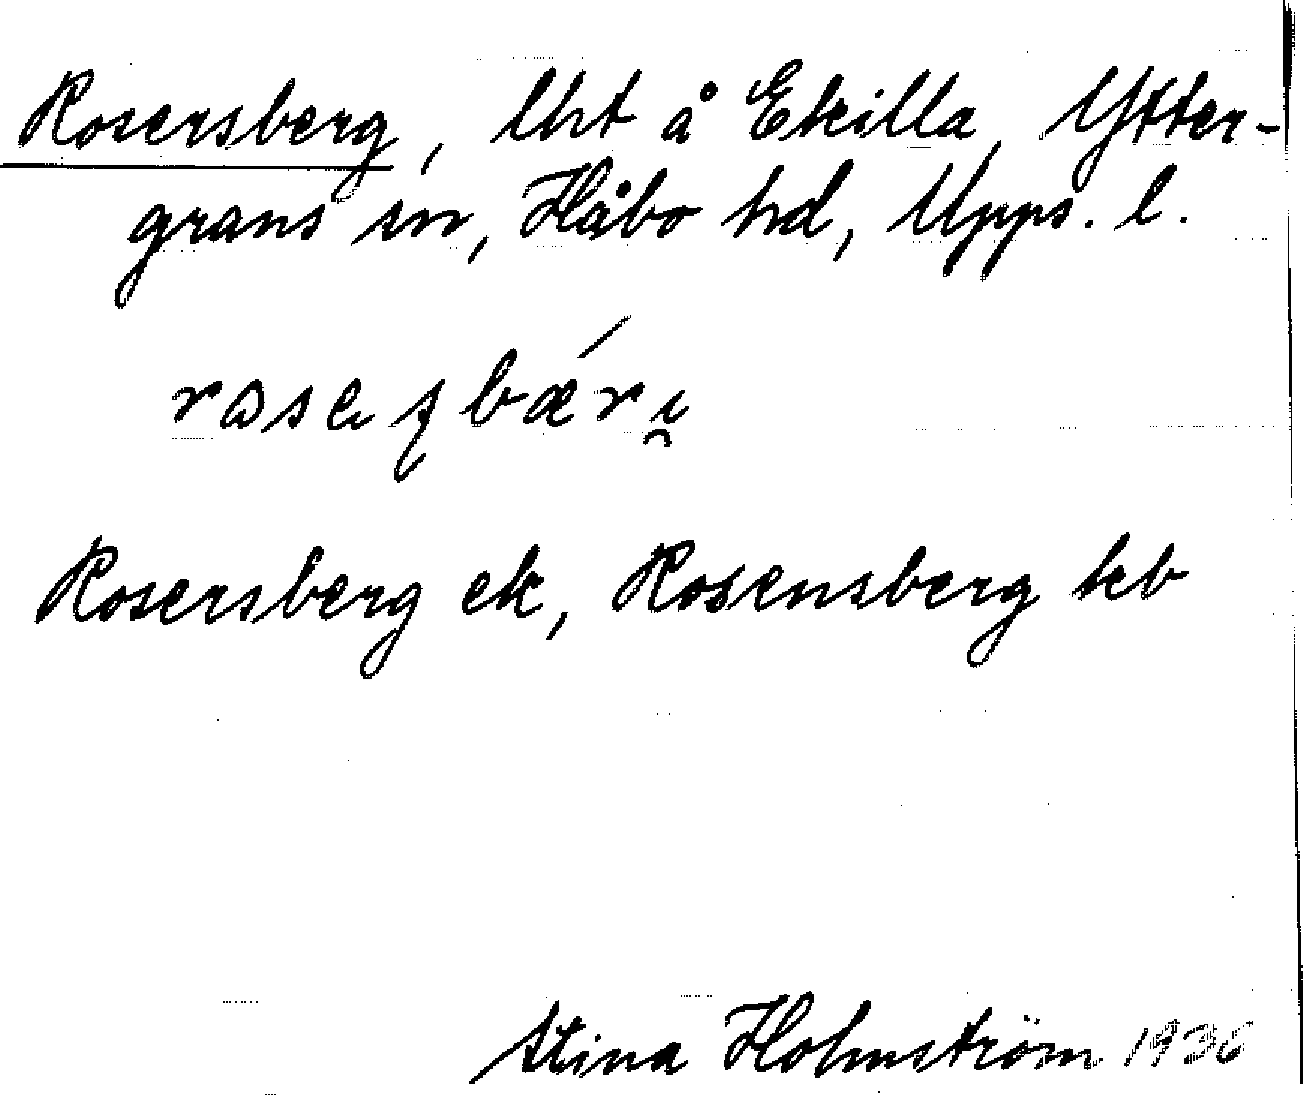 Rosersberg, lht å Ekilla, Ytter-
grans sn, Håbo hd, Upps. l.
Rosersberg ek, Rosensberg kb
Stina Holmström 1936